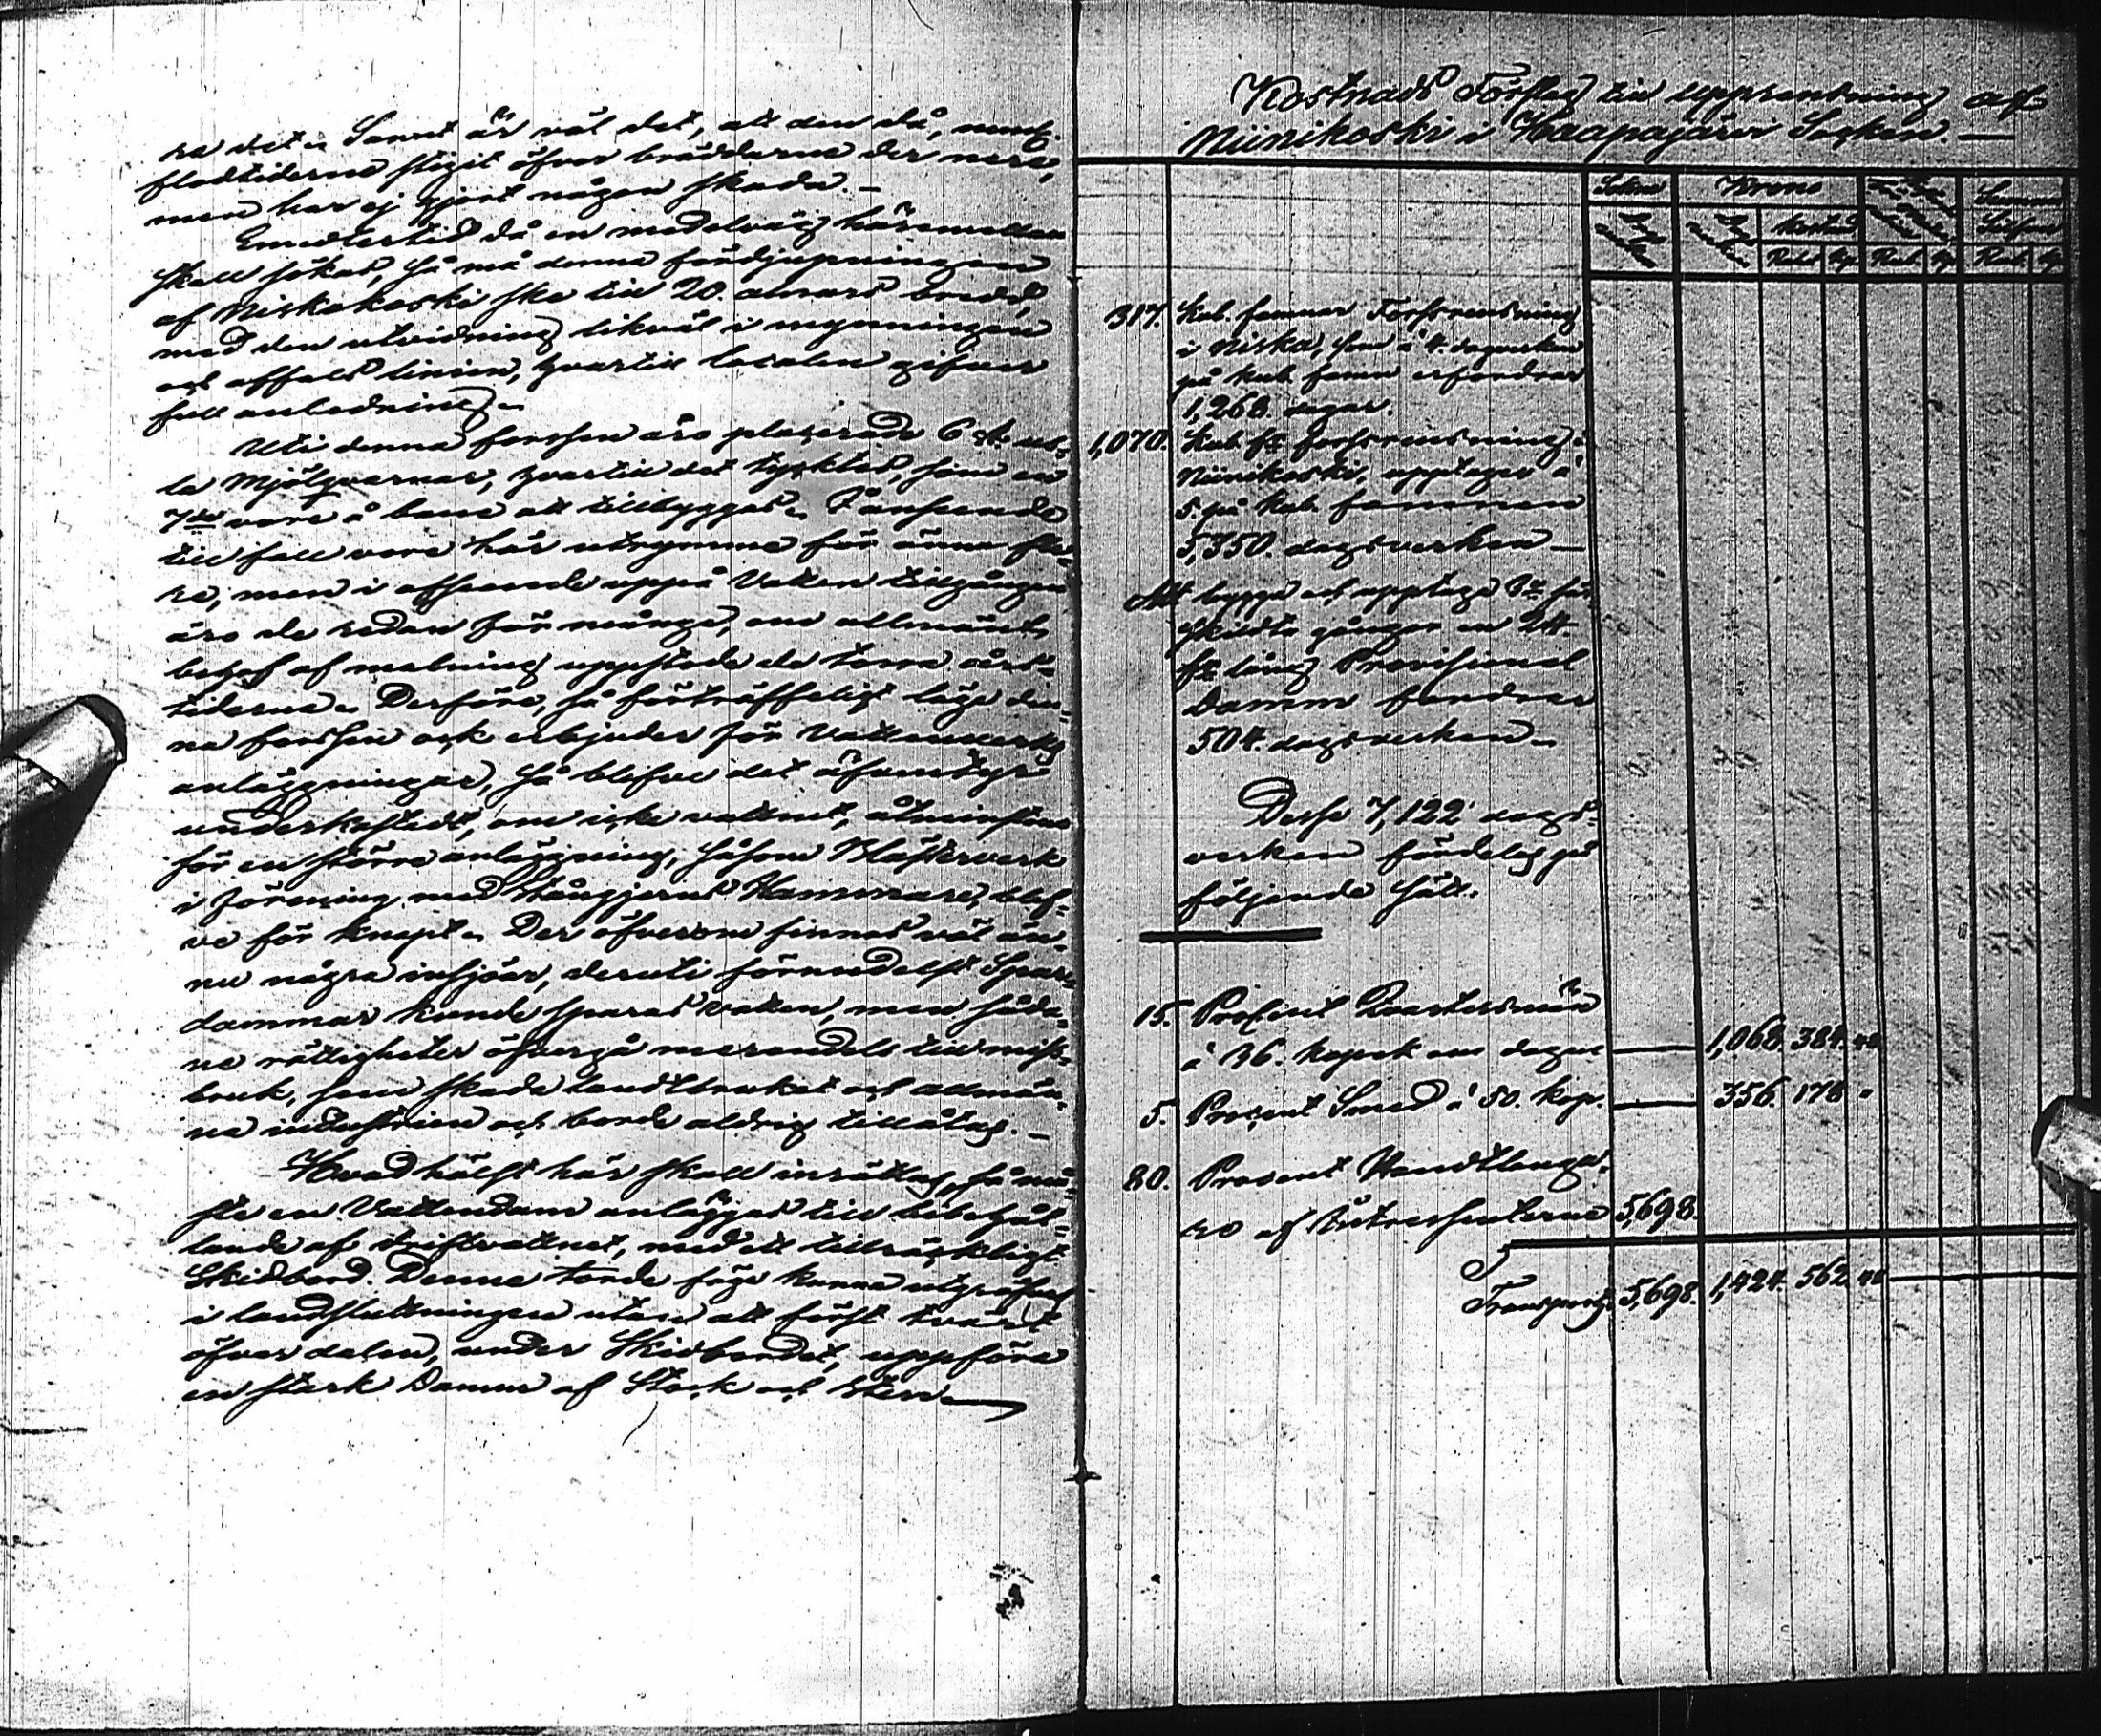 ra det. Sannt är väl det, att den då,
flodtiderne stigit öfver bräddarne der nere,
men har ej gjort någon skada. —
Emedlertid då en medelväg häremellan
skall sökas, så må denna fördjupningen
af Niskakoski ske till 20. alnars bredd,
med den utvidning likväl i mynningen
och affals linien, hvartill localen gifver
full anledning.
Uti denna forssen äro placerade 6 st.
la Mjölqvarnar, hvartill det tycktes, som en
7de vore å bane att tillbyggas. I anseende
till fall vore här utrymme för ännu fle-
re, men i afseende uppå Vatten tillgången
äro de redan för många, om allmänt
behof af malning uppstode de torra års-
tiderne. Derföre, så förträffeligt läge den-
na forssen ock erbjuder för Vattenverks
anläggningar, så blefve det äfventyr
underkastadt, om icke vattnet, åtminstone
för en större anläggning, såsom Blåsterverk
i förening med Stångjerns Hammare, blef-
ve för knapt. Der öfverom finnas väl än-
nu några insjöar, deruti förmedelst Spar-
dammar kunde sparas vatten, men såda-
ne rättigheter öfvergå merendels till miss-
bruk, som skada landtbruket och allmän-
na industrien och borde aldrig tillåtas. —
Hvad hälst här skall inrättas, så må-
ste en Vattendam anläggas till bibehål-
lande af driftvattnet, med ett tillräckligt
Skidbord. Denne torde föga kunna utgräfvas
i landsluttningen utan att först tvärt
öfver dalen, under Skidbordet, uppföra
en stark Damm af Stock och Sten.
Kostnads Förslag till Upprensning af
Niinikoski i Haapajärvi Socken. —
Socken Krono Summa
Kostnad Silfver
Rub. Kop. Rub. Kop. Rub. Kop.
317. Kub. famnar Forssrensning
i Niska, som à 4. dagsverken
på Kub. famn erfordrar
1,268. dagar.
1,070. Kub. fr Forssrensning i
Niinikoski, upptages à
5. på Kub. famnen
5,350. dagsverken —
Att bygga och upptaga 3ne sär-
skildta gånger en 24.
fr lång Provisionel
Damm fordrar
504. dagsverken.
Desse 7,122 dags-
verken fördelas på
följande sätt.
15. Procent Qvartersmän
à 36. kopek om dagen — 1,068. 384. 48
5. Procent Smed à 50. kop. — 356. 178 "
80. Procent Handtlanga-
re af Intressenterne 5,698.
Transport 5,698. 1,424. 562. 48 —